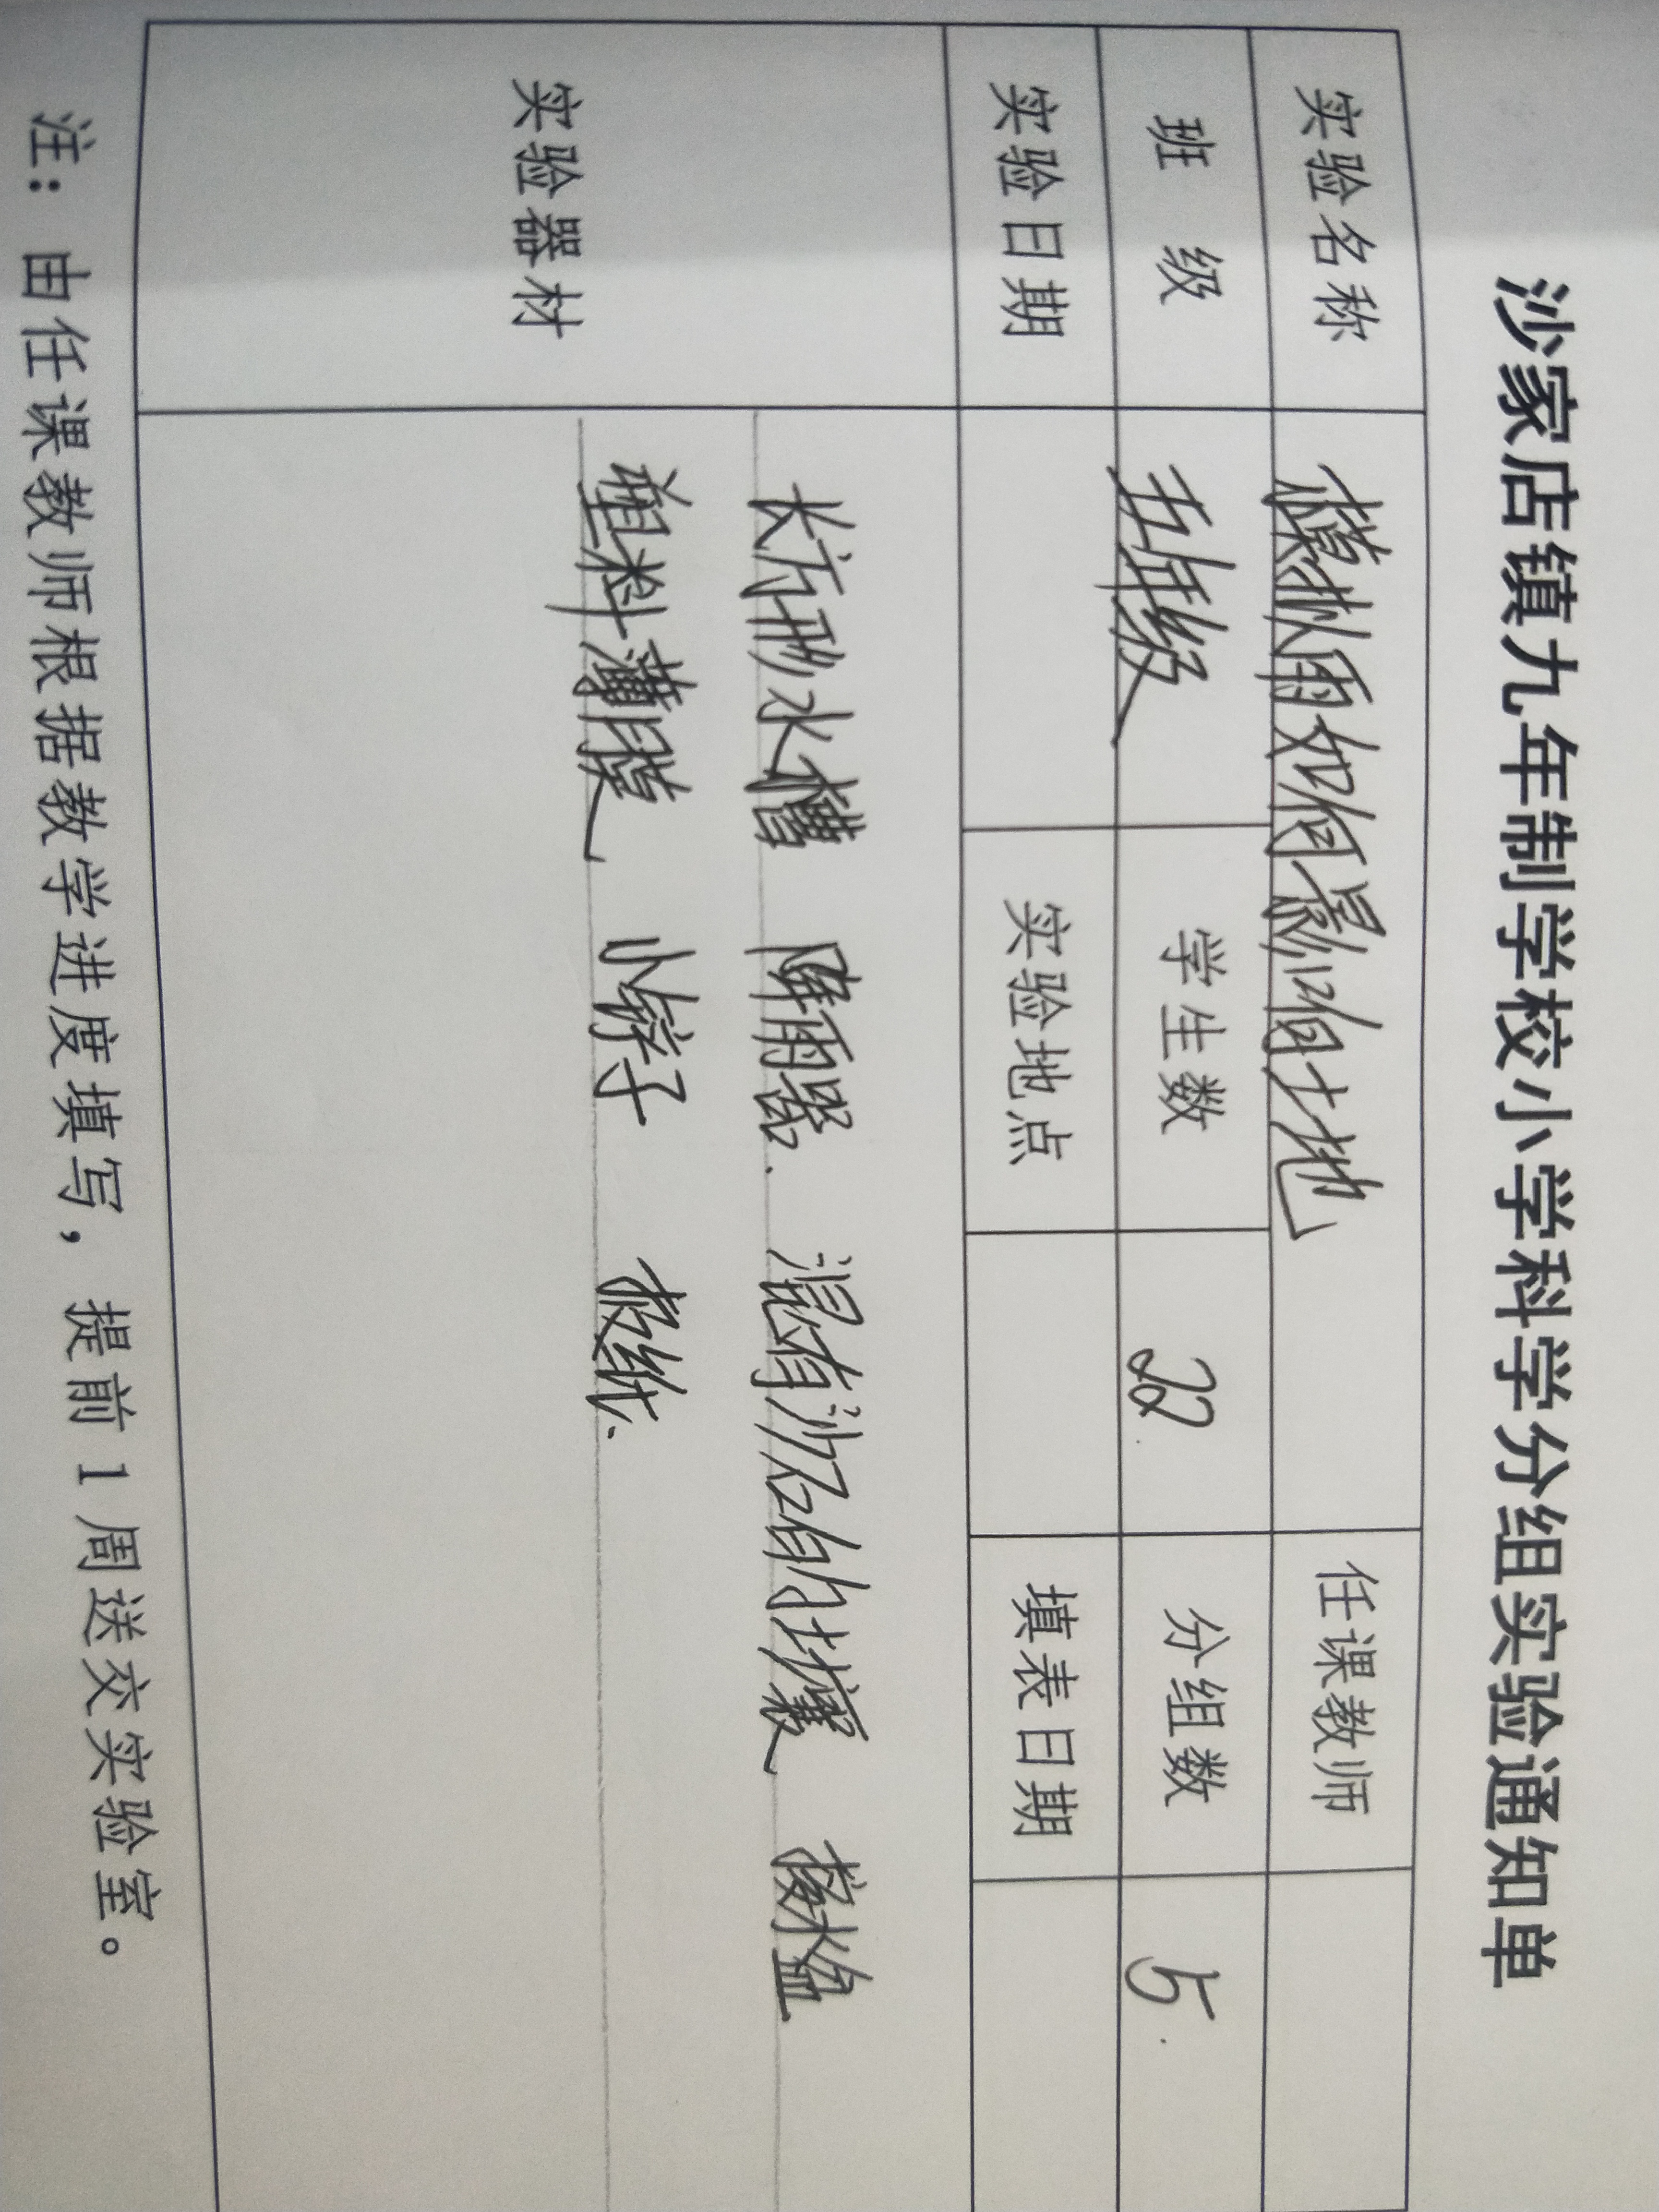 沙家店镇九年制学校小学科学分组实验通知单
实验名称 模拟雨如何影响土地 任课教师
班 级 五年级 学生数 22 分组数 5
实验日期 实验地点 填表日期
实验器材
长方形水槽 降雨器 混有沙石的土壤 接水盒
塑料薄膜 小铲子 报纸
注：由任课教师根据教学进度填写，提前1周送交实验室。